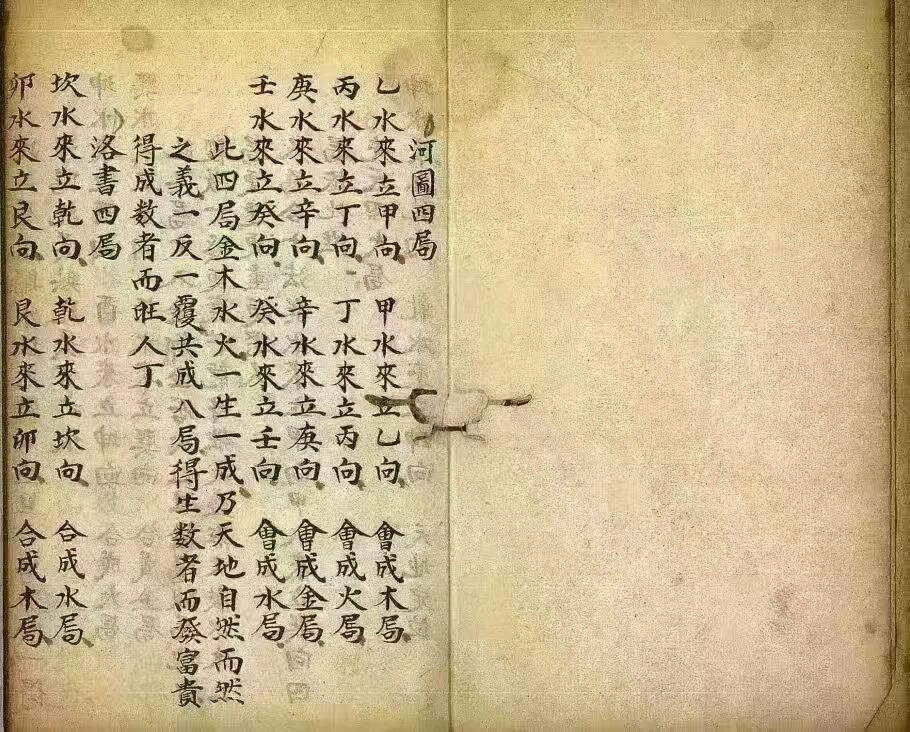 河圖四局
乙水來立甲向 甲水來立乙向 會成木局
丙水來立丁向 丁水來立丙向 會成火局
庚水來立辛向 辛水來立庚向 會成金局
壬水來立癸向 癸水來立壬向 會成水局
此四局金木水火一生一成乃天地自然而然
之義一反一覆共成八局得生数者而發富貴
得成数者而旺人丁
洛書四局
坎水來立乾向 乾水來立坎向 合成水局
卯水來立艮向 艮水來立卯向 合成木局